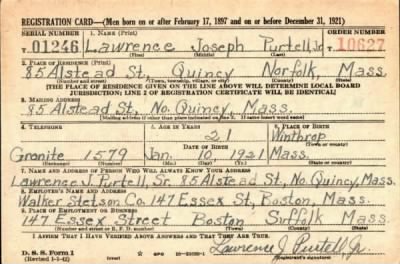 REGISTRATION CARD—(Men born on or after February 17, 1897 and on or before December 31, 1921)
SERIAL NUMBER 1. NAME (Print) ORDER NUMBER
T01246 Lawrence Joseph Purtell, Jr. T10627
(First) (Middle) (Last)
2. PLACE OF RESIDENCE (Print)
85 Alstead St. Quincy Norfolk, Mass.
(Number and street) (Town, township, village, or city) (County) (State)
[THE PLACE OF RESIDENCE GIVEN ON THE LINE ABOVE WILL DETERMINE LOCAL BOARD
JURISDICTION; LINE 2 OF REGISTRATION CERTIFICATE WILL BE IDENTICAL]
3. MAILING ADDRESS
85 Alstead St, No. Quincy, Mass.
[Mailing address if other than place indicated on line 2. If same insert word same]
4. TELEPHONE 5. AGE IN YEARS 6. PLACE OF BIRTH
21 Winthrop
DATE OF BIRTH (Town or county)
Granite 1579 Jan. 10 1921 Mass.
(Exchange) (Number) (Mo.) (Day) (Yr.) (State or country)
7. NAME AND ADDRESS OF PERSON WHO WILL ALWAYS KNOW YOUR ADDRESS
Lawrence J. Purtell, Sr. 85 Alstead St, No. Quincy, Mass.
8. EMPLOYER'S NAME AND ADDRESS
Walker Stetson Co. 147 Essex St, Boston, Mass.
9. PLACE OF EMPLOYMENT OR BUSINESS
147 Essex Street Boston Suffolk Mass.
(Number and street or R. F. D. number) (Town) (County) (State)
I AFFIRM THAT I HAVE VERIFIED ABOVE ANSWERS AND THAT THEY ARE TRUE.
D. S. S. Form 1 GPO
(Revised 1-1-42) Lawrence J. Purtell, Jr.
(Registrant's signature)